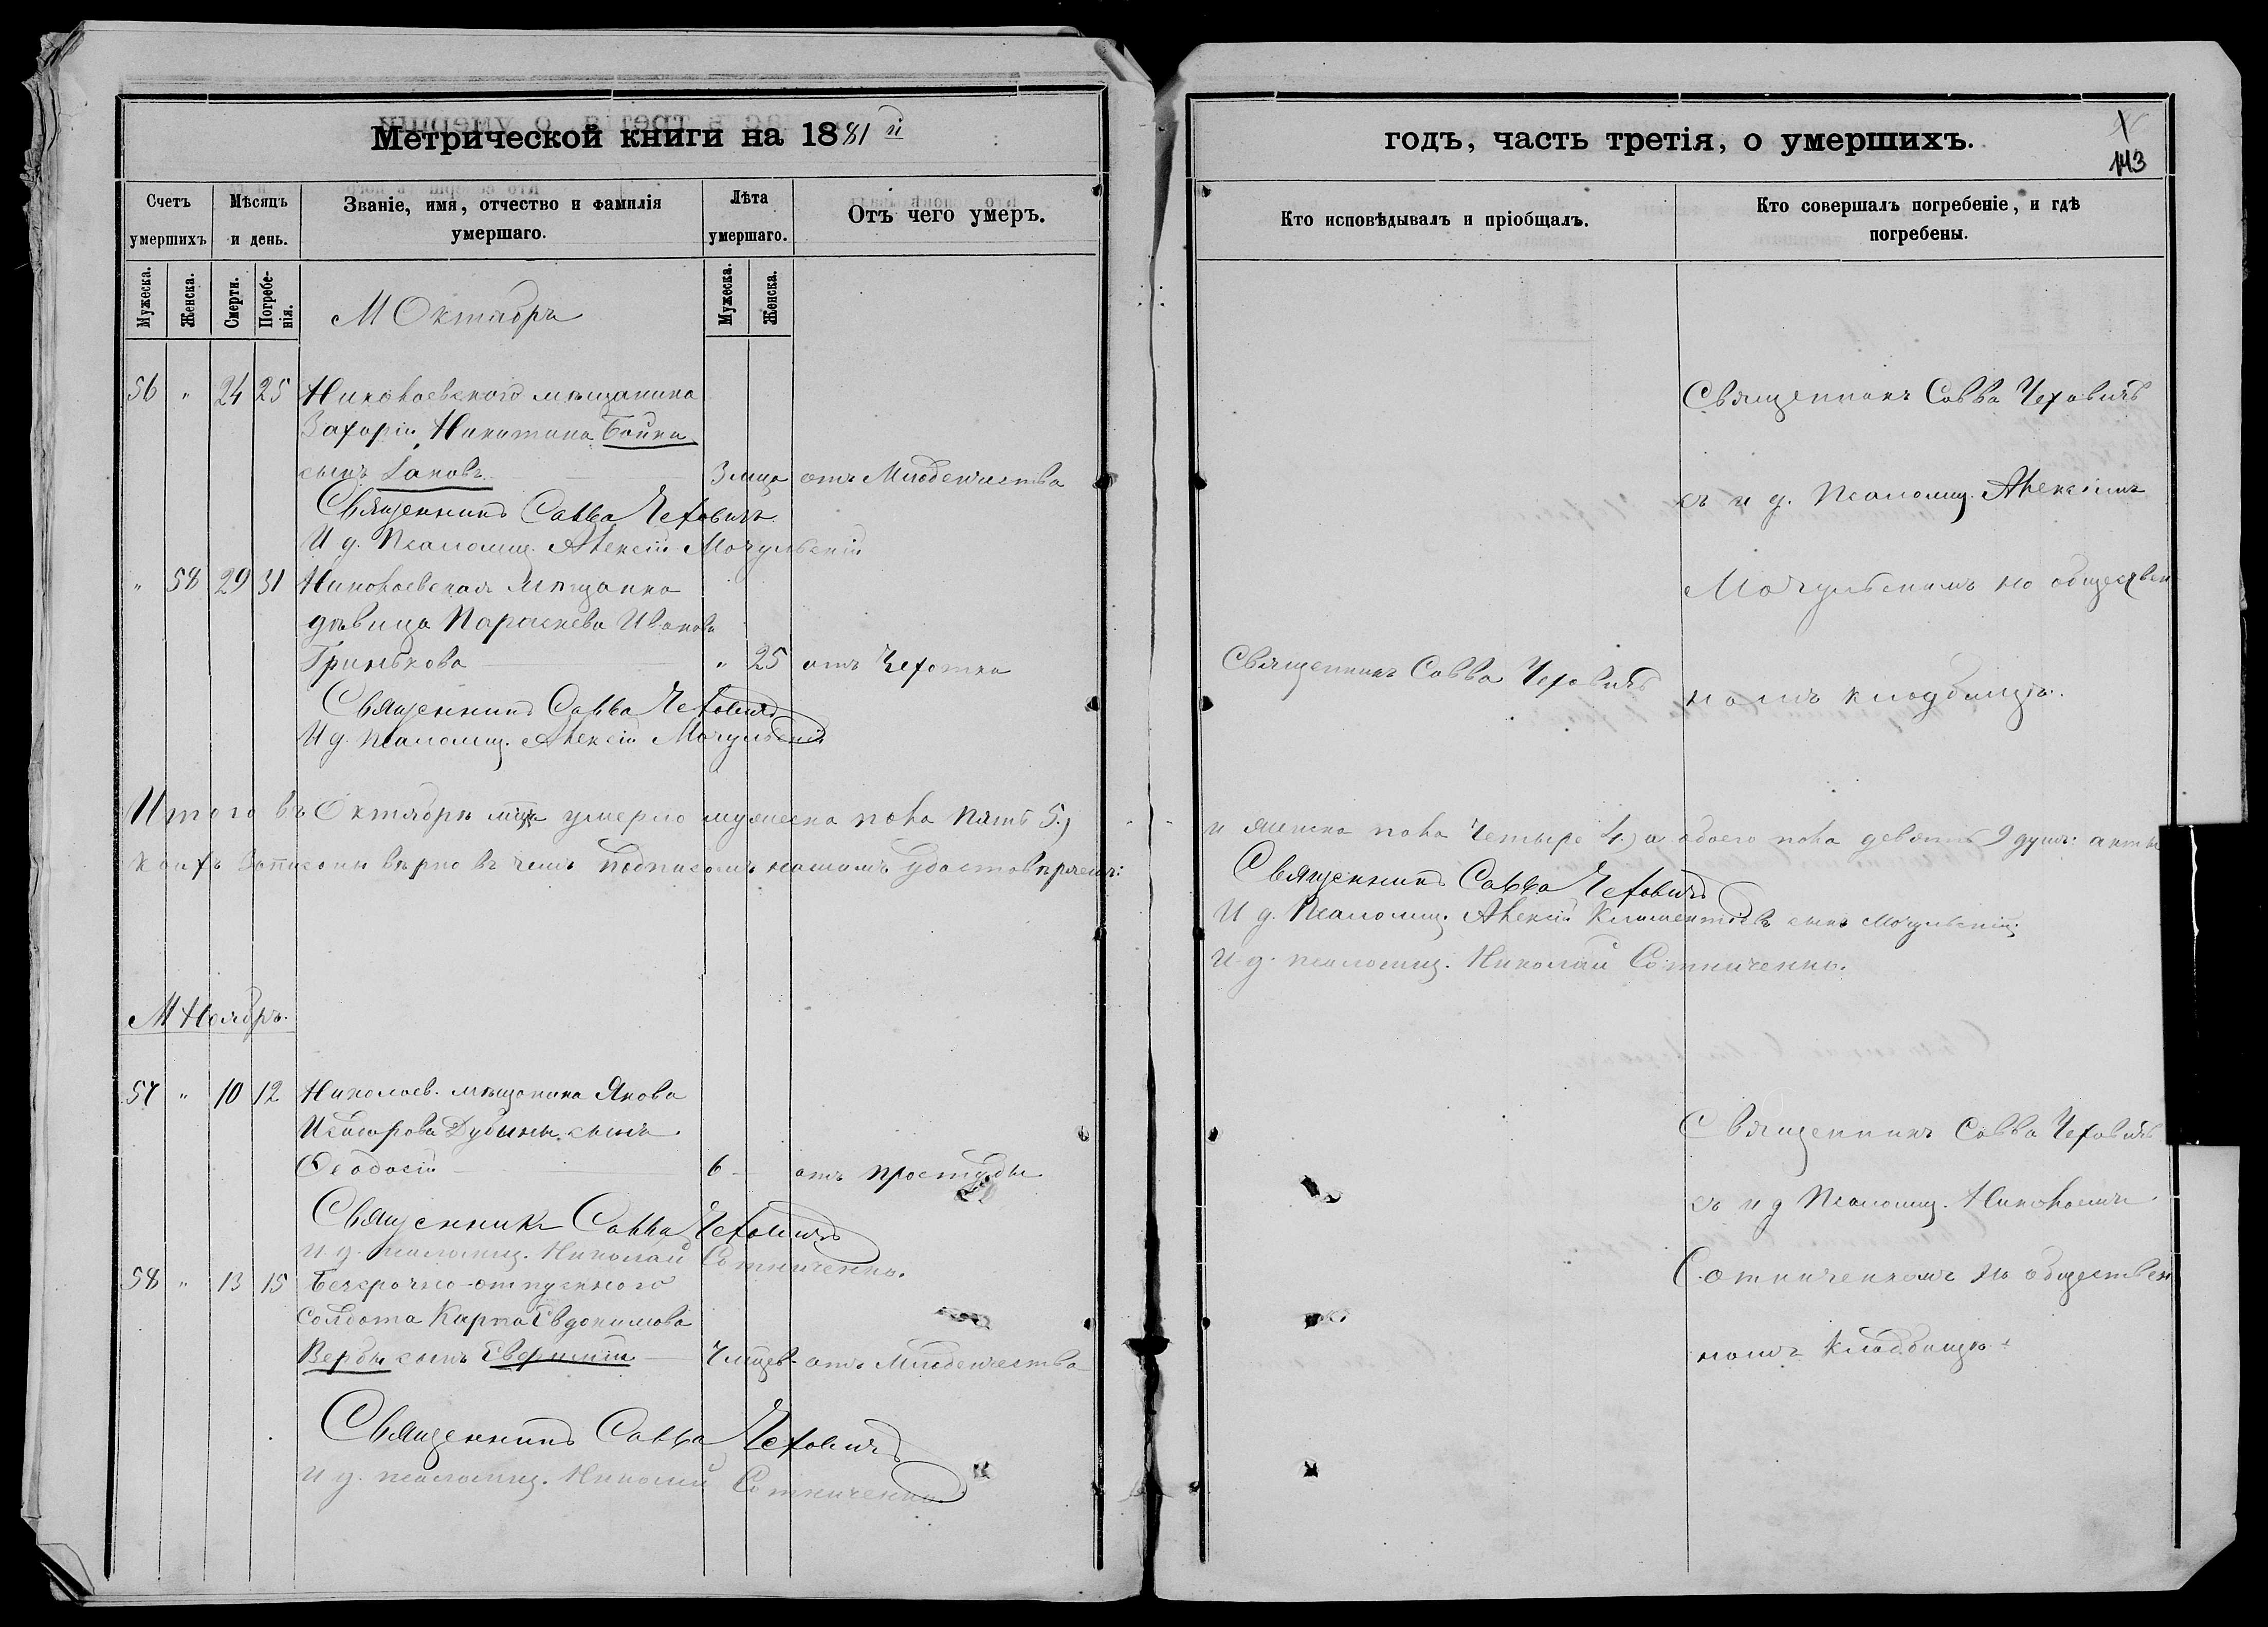 Метрической книги на 1881й
Счетъ умершихъ
Мѣсяцъ и день.
Званіе, имя, отчество и фамилія умершаго.
Лѣта умершаго.
Отъ чего умеръ.
Мужеска.
Женска.
Смерти.
Погребенія.
М Октябрь
Мужеска.
Женска.
56 " 24 25 Николаевского мѣщанина
Захарія Никитина Бойка
сынъ Іаковъ 3 мца отъ Младенчества
Священникъ Савва Чеховичъ
И д. Псаломщ. Алексій Мочульскій
" 58 29 31 Николаевская мѣщанка
дѣвица Параскева Иванова
Гринькова " 25 отъ Чахотки
Священникъ Савва Чеховичъ
И д. Псаломщ. Алексій Мочульскій
Итого въ Октябрѣ мцѣ умерло мужеска пола пять 5.)
коихъ записаны вѣрно въ чемъ подписомъ нашимъ удостовѣряемъ:
М Ноябрь.
57 " 10 12 Николаев. мѣщанина Якова
Дубины сынъ
Ѳеодосій 6 - отъ простуды
Священникъ Савва Чеховичъ
и. д. псаломщ. Николай Сотниченко.
58 " 13 15 Безсрочно-отпускного
солдата Карпа Евдокимова
Вербы сынъ Евфимій мцев - отъ Младенчества
Священникъ Савва Чеховичъ
и д. псаломщ. Николай Сотниченко
годъ, часть третія, о умершихъ.
143
Кто исповѣдывалъ и пріобщалъ.
Кто совершалъ погребеніе, и гдѣ погребены.
Священникъ Савва Чеховичъ
съ и д. Псаломщ. Алексіемъ
Мочульскимъ на обществен
Священникъ Савва Чеховичъ
номъ кладбищѣ.
и женска пола Четыре 4.) а обоего пола девять 9 душъ: акты
Священникъ Савва Чеховичъ
И д. Псаломщ. Алексій Климентовъ сынъ Мочульскій
и. д. псаломщ. Николай Сотниченко.
Священникъ Савва Чеховичъ
съ и д Псаломщ. Николаемъ
Сотниченкомъ на обществен
номъ кладбищѣ